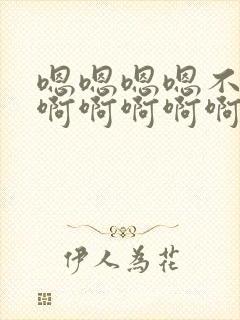 嗯嗯嗯嗯不
啊啊啊啊啊
伊人為花